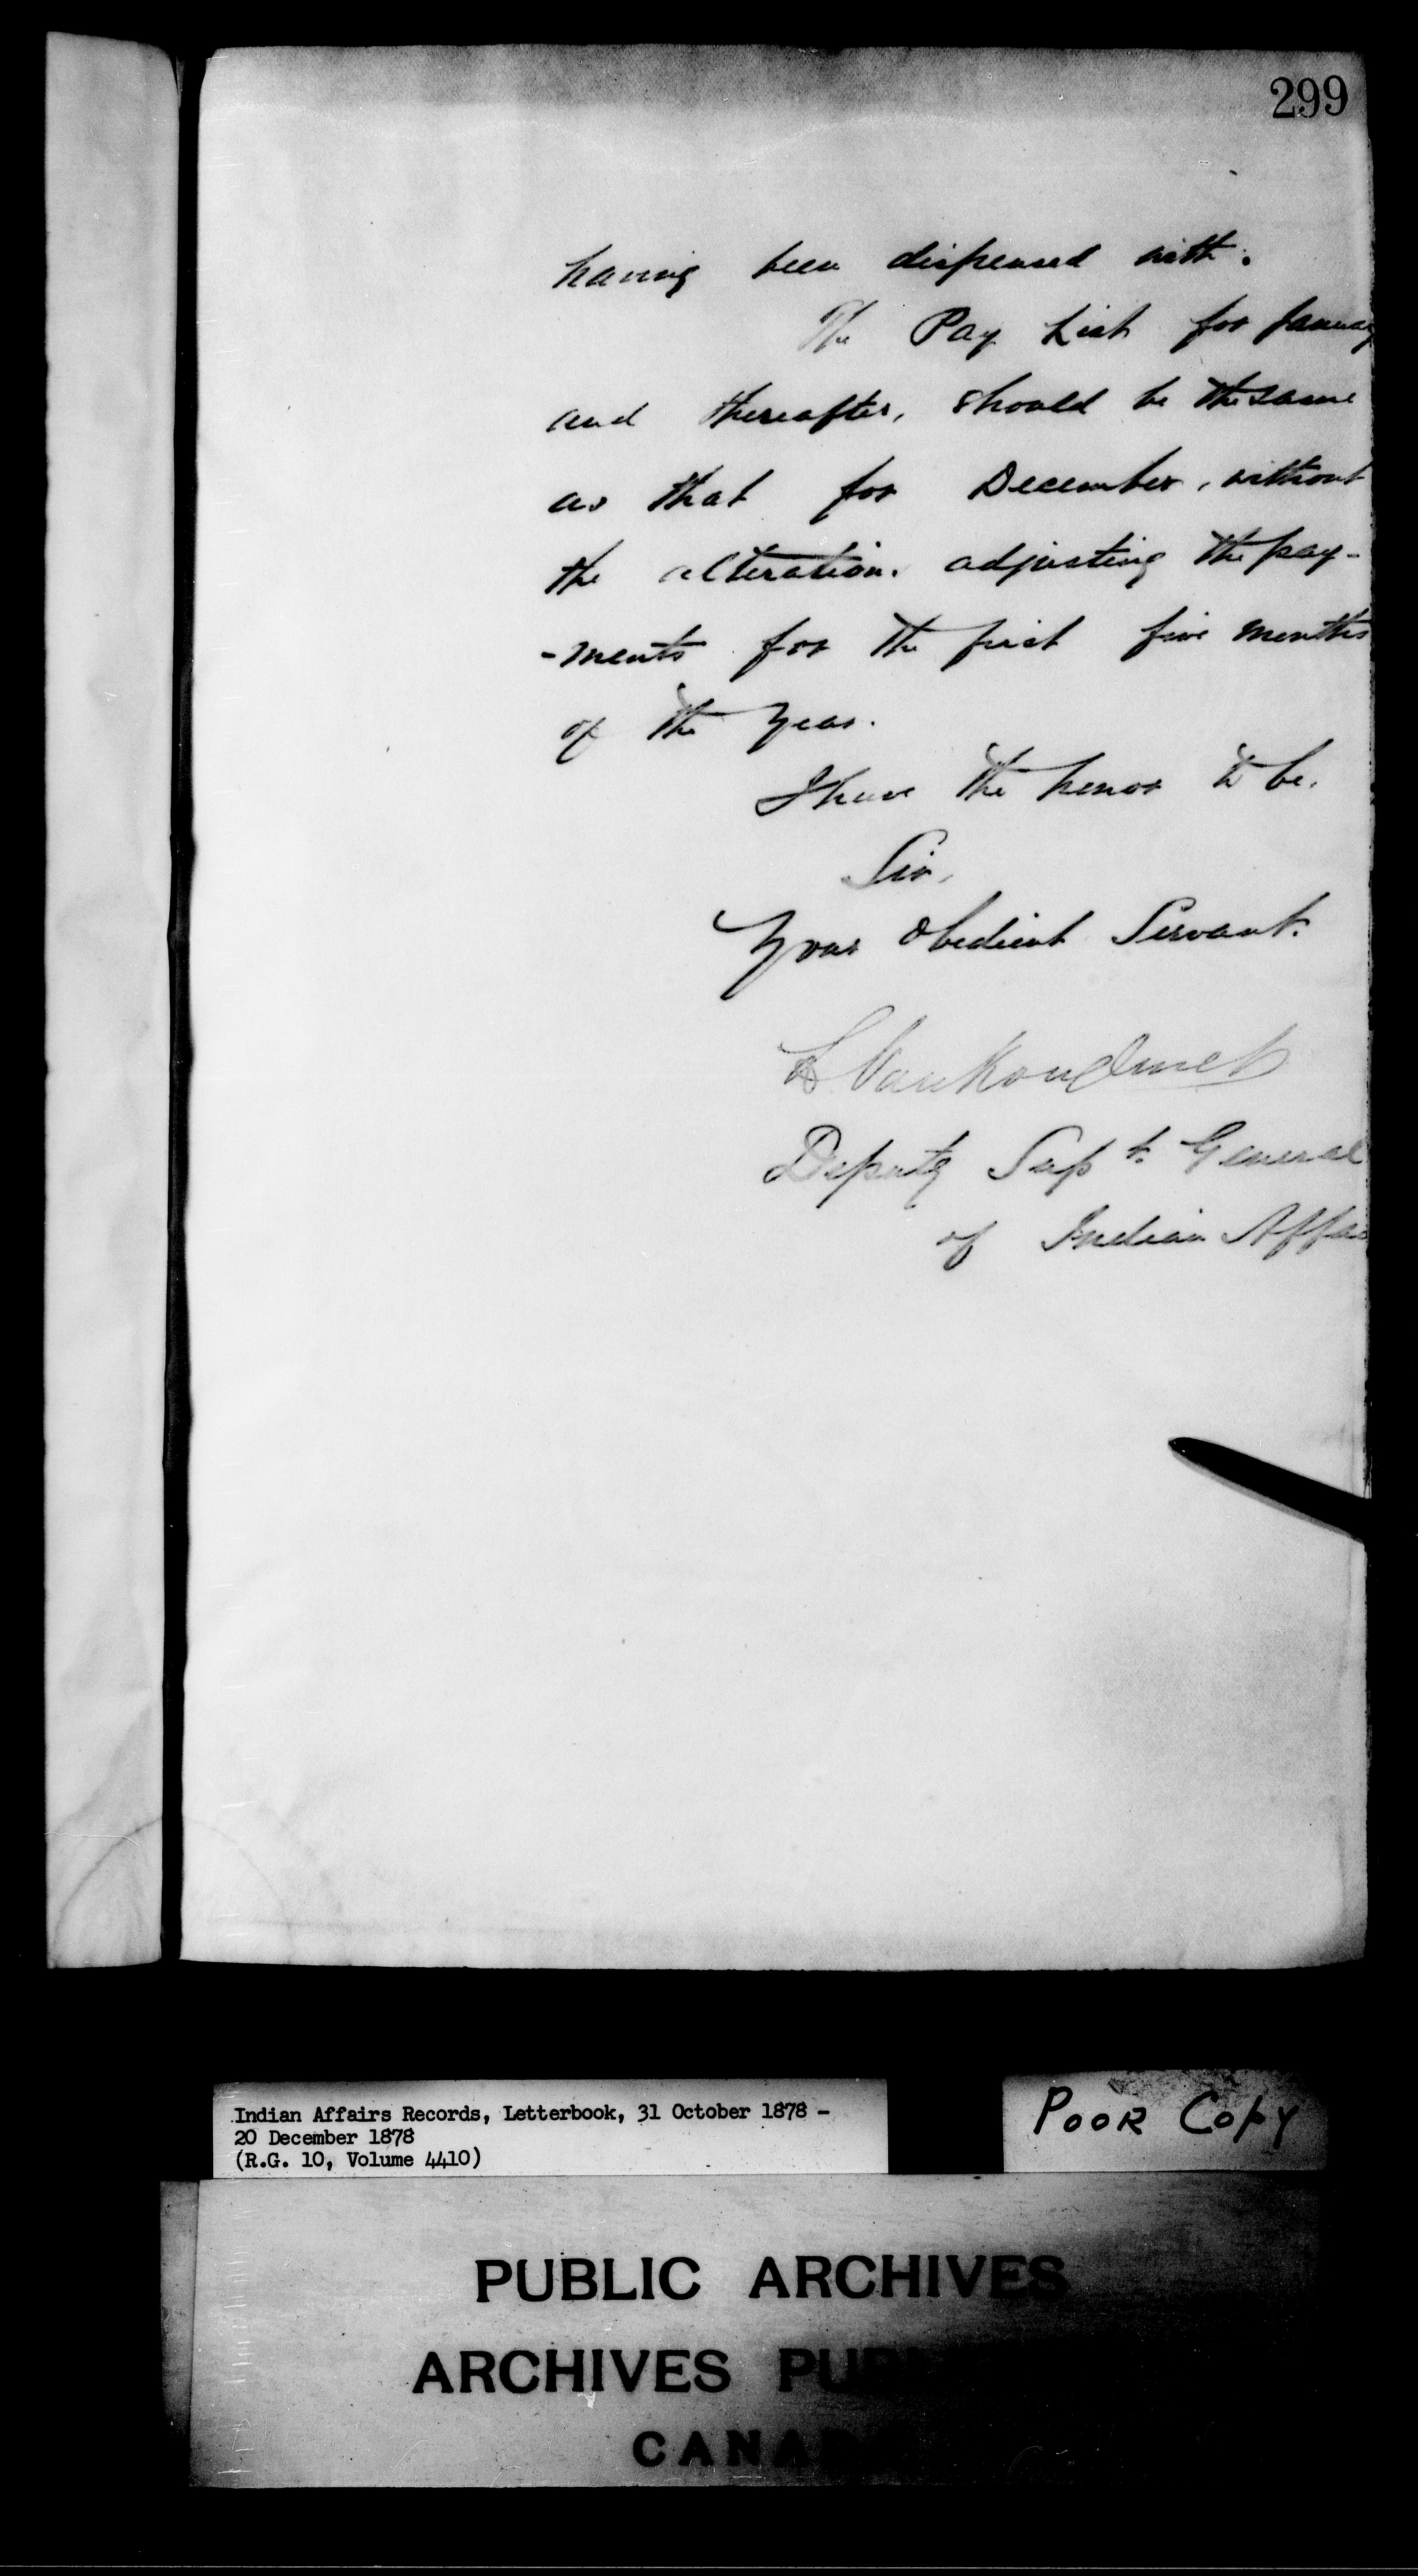 299
having been dispensed with.
The Pay List for January
and thereafter, should be the same
as that for December, without
the alteration. adjusting the pay-
-ments for the first five months
of the Year.
I have the honor to be,
Sir,
Your Obedient Servant.
L Vankoughnet
Deputy Supt. General
of Indian Affai
Indian Affairs Records, Letterbook, 31 October 1878 -
20 December 1878
(R.G. 10, Volume 4410)
POOR COPY
PUBLIC ARCHIVES
ARCHIVES PUB
CANA